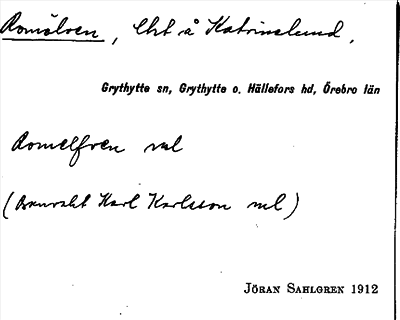 Romälven, Ekt å Katrinelund,
Grythytte sn, Grythytte o. Hällefors hd, Örebro län
Romelfven ml
( Karl Karlsson ml)
JÖRAN SAHLGREN 1912